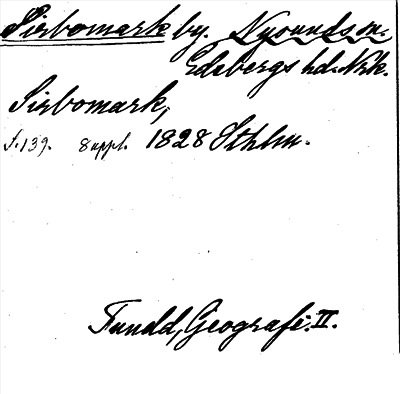 Sirbomark by. Nysunds sn.
Edsbergs hd. Nrk.
Sirbomark,
s. 139. 8 uppl. 1828 Sthlm.
Tuneld, Geografi. II.